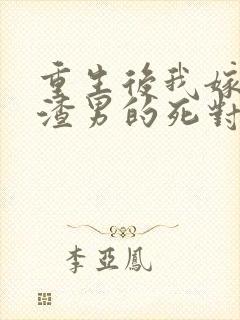 重生後我嫁
渣男的死對
李亞鳳